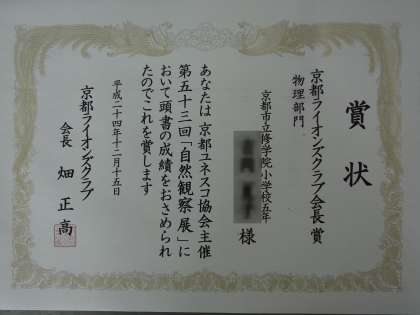 賞状
京都ライオンズクラブ会長賞
物理部門
京都市立修学院小学校五年
様
あなたは京都ユネスコ協会主催
第五十三回「自然観察展」に
おいて頭書の成績をおさめられ
たのでこれを賞します
平成二十四年十二月十五日
京都ライオンズクラブ
会長 畑 正高